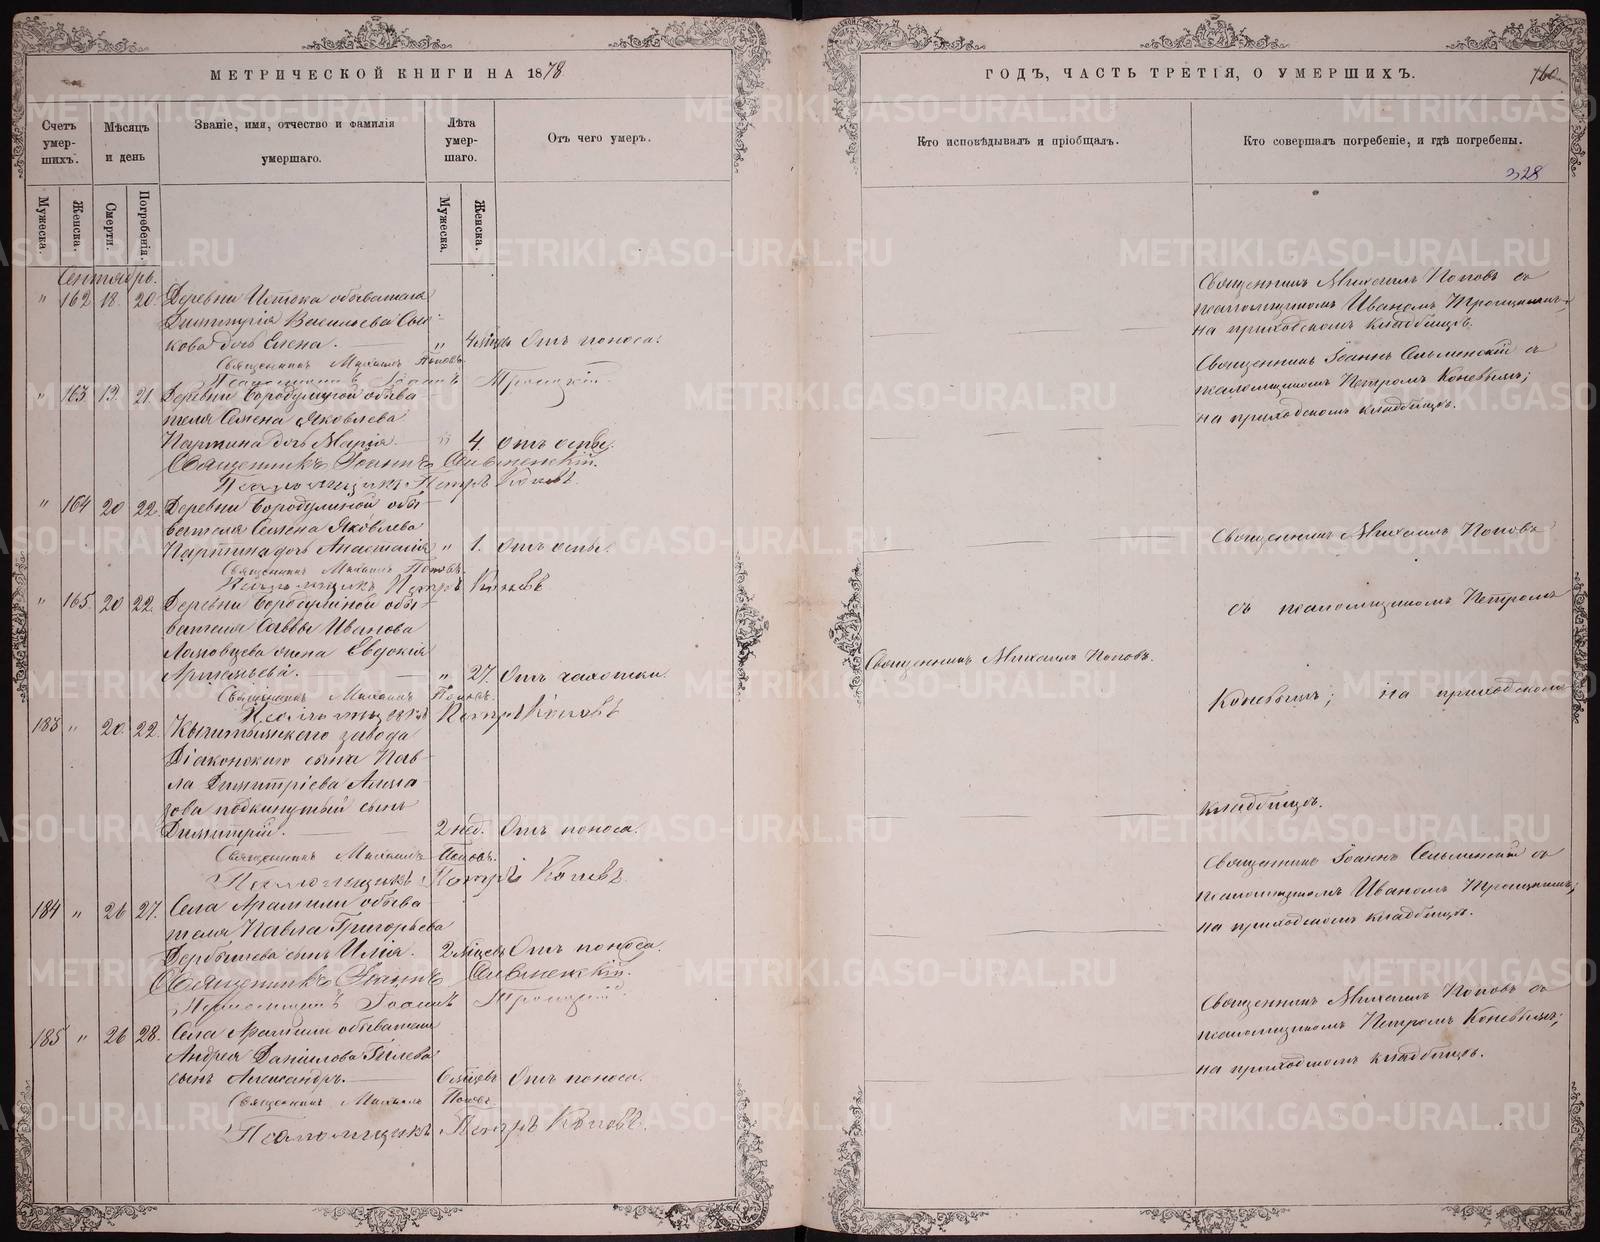 МЕТРИЧЕСКОЙ КНИГИ НА 1878
Счетъ умер-шихъ.
Мѣсяцъ и день
Званіе, имя, отчество и фамилія умершаго.
Лѣта умер-шаго.
Отъ чего умеръ.
Мужеска.
Женска.
Смерти.
Погребенія.
Мужеска.
Женска.
Сентябрь.
" 162 18. 20. Деревни Истока обывателя
Димитрія Васильева Сы-
кова дочь Елена. " 4 мѣсц. Отъ поноса.
Священникъ Михаилъ Поповъ
Псаломщикъ Іоаннъ Троицкій
" 163 19. 21. Деревни Бородулиной обыва
теля Семена Яковлева
Партина дочь Марія " 4. Отъ оспы.
Священникъ Іоаннъ Сельменскій.
Псаломщикъ Петръ Коневъ.
" 164 20 22. Деревни Бородулиной обы-
вателя Семена Яковлева
Партина дочь Анастасія " 1. Отъ оспы.
Священникъ Михаилъ Поповъ.
Псаломщикъ Петръ Коневъ
" 165. 20 22. Деревни Бородулиной обы-
вателя Саввы Иванова
жена Евдокія
" 27. Отъ чахотки.
Священникъ Михаилъ Поповъ.
Псаломщикъ Петръ Коневъ
183 " 20. 22. Кыштымскаго завода
Діаконскаго сына Пав-
ла Димитріева Алма-
зова подкинутый сынъ
Димитрій. 2 нед. Отъ поноса.
Священникъ Михаилъ Поповъ.
Псаломщикъ Петръ Коневъ.
184 " 26 27. Села Арамили обыва-
теля Павла Григорьева
Дербышева сынъ Илія. 2 мѣсц. Отъ поноса.
Священникъ Іоаннъ Сельменскій.
Псаломщикъ Іоаннъ Троицкій.
185 " 26 28. Села Арамили обывателя
Андрея Даніилова Гилева
сынъ Александръ. 6 мѣсцовъ Отъ поноса.
Священникъ Михаилъ Поповъ.
Псаломщикъ Петръ Коневъ.
ГОДЪ, ЧАСТЬ ТРЕТІЯ, О УМЕРШИХЪ.
160
Кто исповѣдывалъ и пріобщалъ.
Кто совершалъ погребеніе, и гдѣ погребены.
328
Священникъ Михаилъ Поповъ съ
псаломщикомъ Иваномъ Троицкимъ;
на приходскомъ кладбищѣ.
Священникъ Іоаннъ Сельменскій съ
псаломщикомъ Петромъ Коневымъ;
на приходскомъ кладбищѣ.
Священникъ Михаилъ Поповъ
съ псаломщикомъ Петромъ
Священникъ Михаилъ Поповъ.
Коневымъ; на приходскомъ
кладбищѣ.
Священникъ Іоаннъ Сельменскій съ
псаломщикомъ Иваномъ Троицкимъ;
на приходскомъ кладбищѣ.
Священникъ Михаилъ Поповъ съ
псаломщикомъ Петромъ Коневымъ;
на приходскомъ кладбищѣ.
METRIKI.GASO-URAL.RU